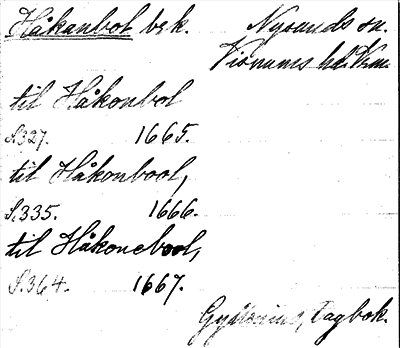 Håkanbol bek. Nysunds sn.
Visnums hd. Vrm.
til Håkonbol
S.327. 1665.
til Håkonbool,
S.335. 1666.
til Håkonebool,
S.364. 1667.
Gyllenius, Dagbok.